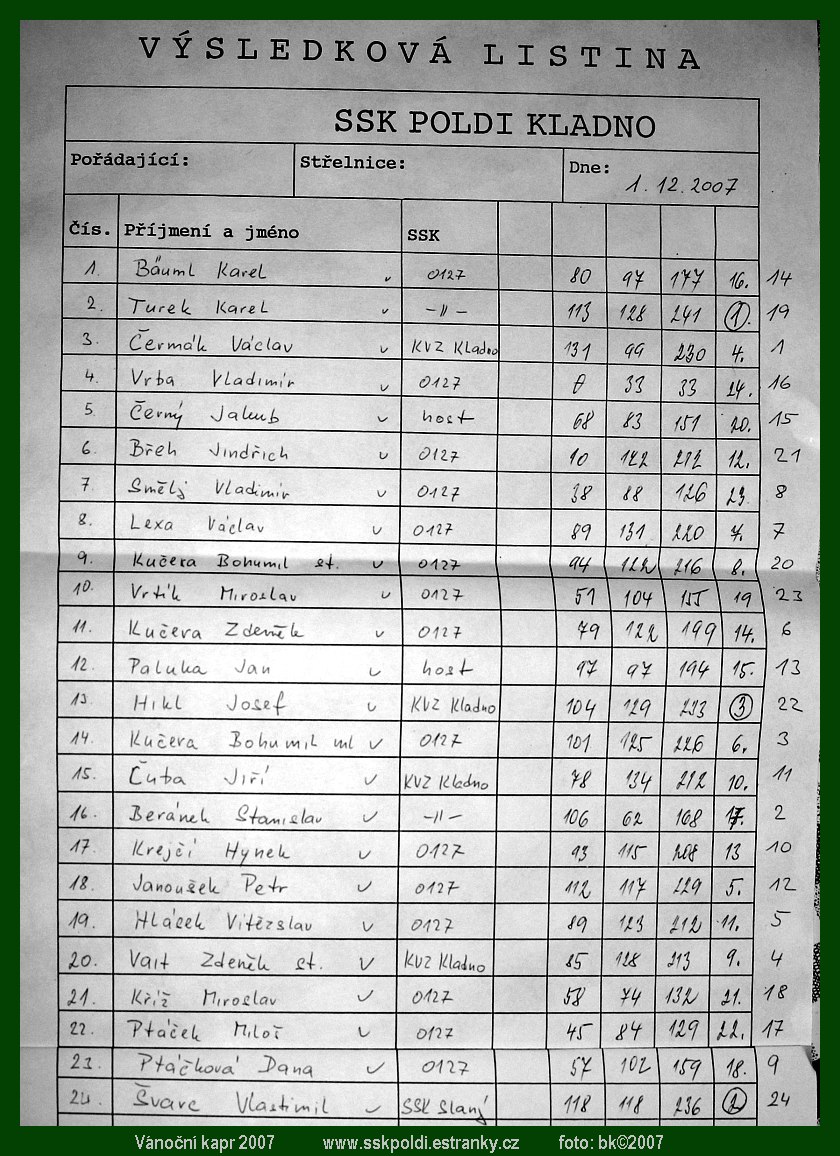 VÝSLEDKOVÁ LISTINA
SSK POLDI KLADNO
Pořádající: Střelnice: Dne: 1.12.2007
Čís. Příjmení a jméno SSK
1. Bäuml Karel ✓ 0127 80 97 177 16. 14
2. Turek Karel ✓ -〃- 113 128 241 1. 19
3. Čermák Václav ✓ KVZ Kladno 131 99 230 4. 1
4. Vrba Vladimír ✓ 0127 0 33 33 24. 16
5. Černý Jakub ✓ host 68 83 151 20. 15
6. Břeh Jindřich ✓ 0127 212 12. 21
7. Smělý Vladimír ✓ 0127 38 88 126 23 8
8. Lexa Václav ✓ 0127 89 131 220 7. 7
9. Kučera Bohumil st. ✓ 0127 94 122 216 8. 20
10. Vrtík Miroslav ✓ 0127 51 104 155 19 23
11. Kučera Zdeněk ✓ 0127 79 122 199 14. 6
12. Paluka Jan ✓ host 97 97 194 15. 13
13. Hikl Josef ✓ KVZ Kladno 104 129 233 3 22
14. Kučera Bohumil ml ✓ 0127 101 125 226 6. 3
15. Čuba Jiří ✓ KVZ Kladno 78 134 212 10. 11
16. Beránek Stanislav ✓ -〃- 106 62 168 17. 2
17. Krejčí Hynek ✓ 0127 93 115 208 13 10
18. Janoušek Petr ✓ 0127 112 117 229 5. 12
19. Hlásek Vítězslav ✓ 0127 89 123 212 11. 5
20. Vait Zdeněk st. ✓ KVZ Kladno 85 128 213 9. 4
21. Kříž Miroslav ✓ 0127 58 74 132 21. 18
22. Ptáček Miloš ✓ 0127 45 84 129 22. 17
23. Ptáčková Dana ✓ 0127 57 102 159 18. 9
24. Švarc Vlastimil ✓ SSK Slaný 118 118 236 2 24
Vánoční kapr 2007 www.sskpoldi.estranky.cz foto: bk©2007